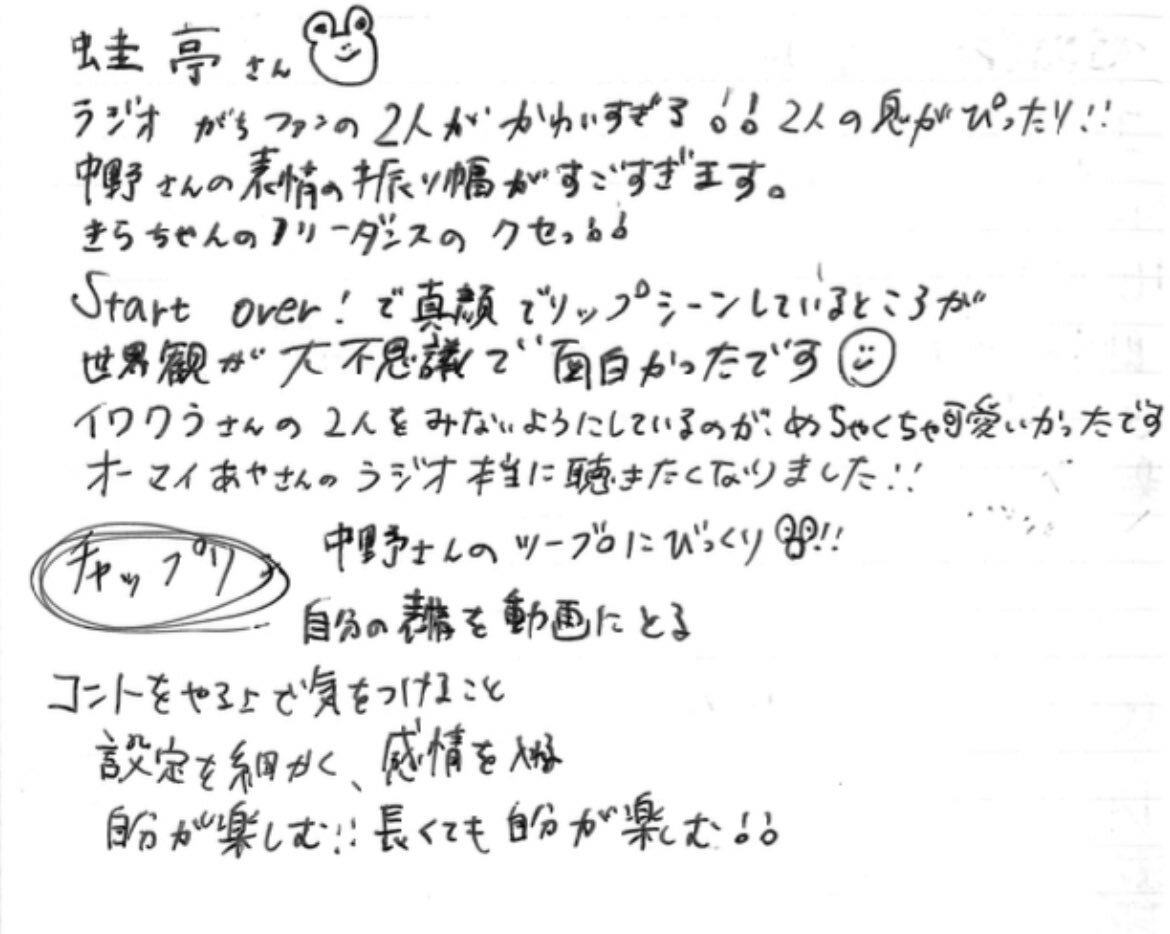 蛙亭さん
ラジオがちファンの2人がかわいすぎる!! 2人の息がぴったり!!
中野さんの表情の振り幅がすごすぎます。
きらちゃんのフリーダンスのクセっ!!
Start over! で真顔でリップシーンしているところが
世界観が大不思議で面白かったです
イワクラさんの2人をみないようにしているのが、めちゃくちゃ可愛いかったです
オーマイあやさんのラジオ本当に聴きたくなりました!!
チャップリン
中野さんのツーブロにびっくり!!
自分の表情を動画にとる
コントをやる上で気をつけること
設定を細かく、感情を入れる
自分が楽しむ!! 長くても自分が楽しむ!!